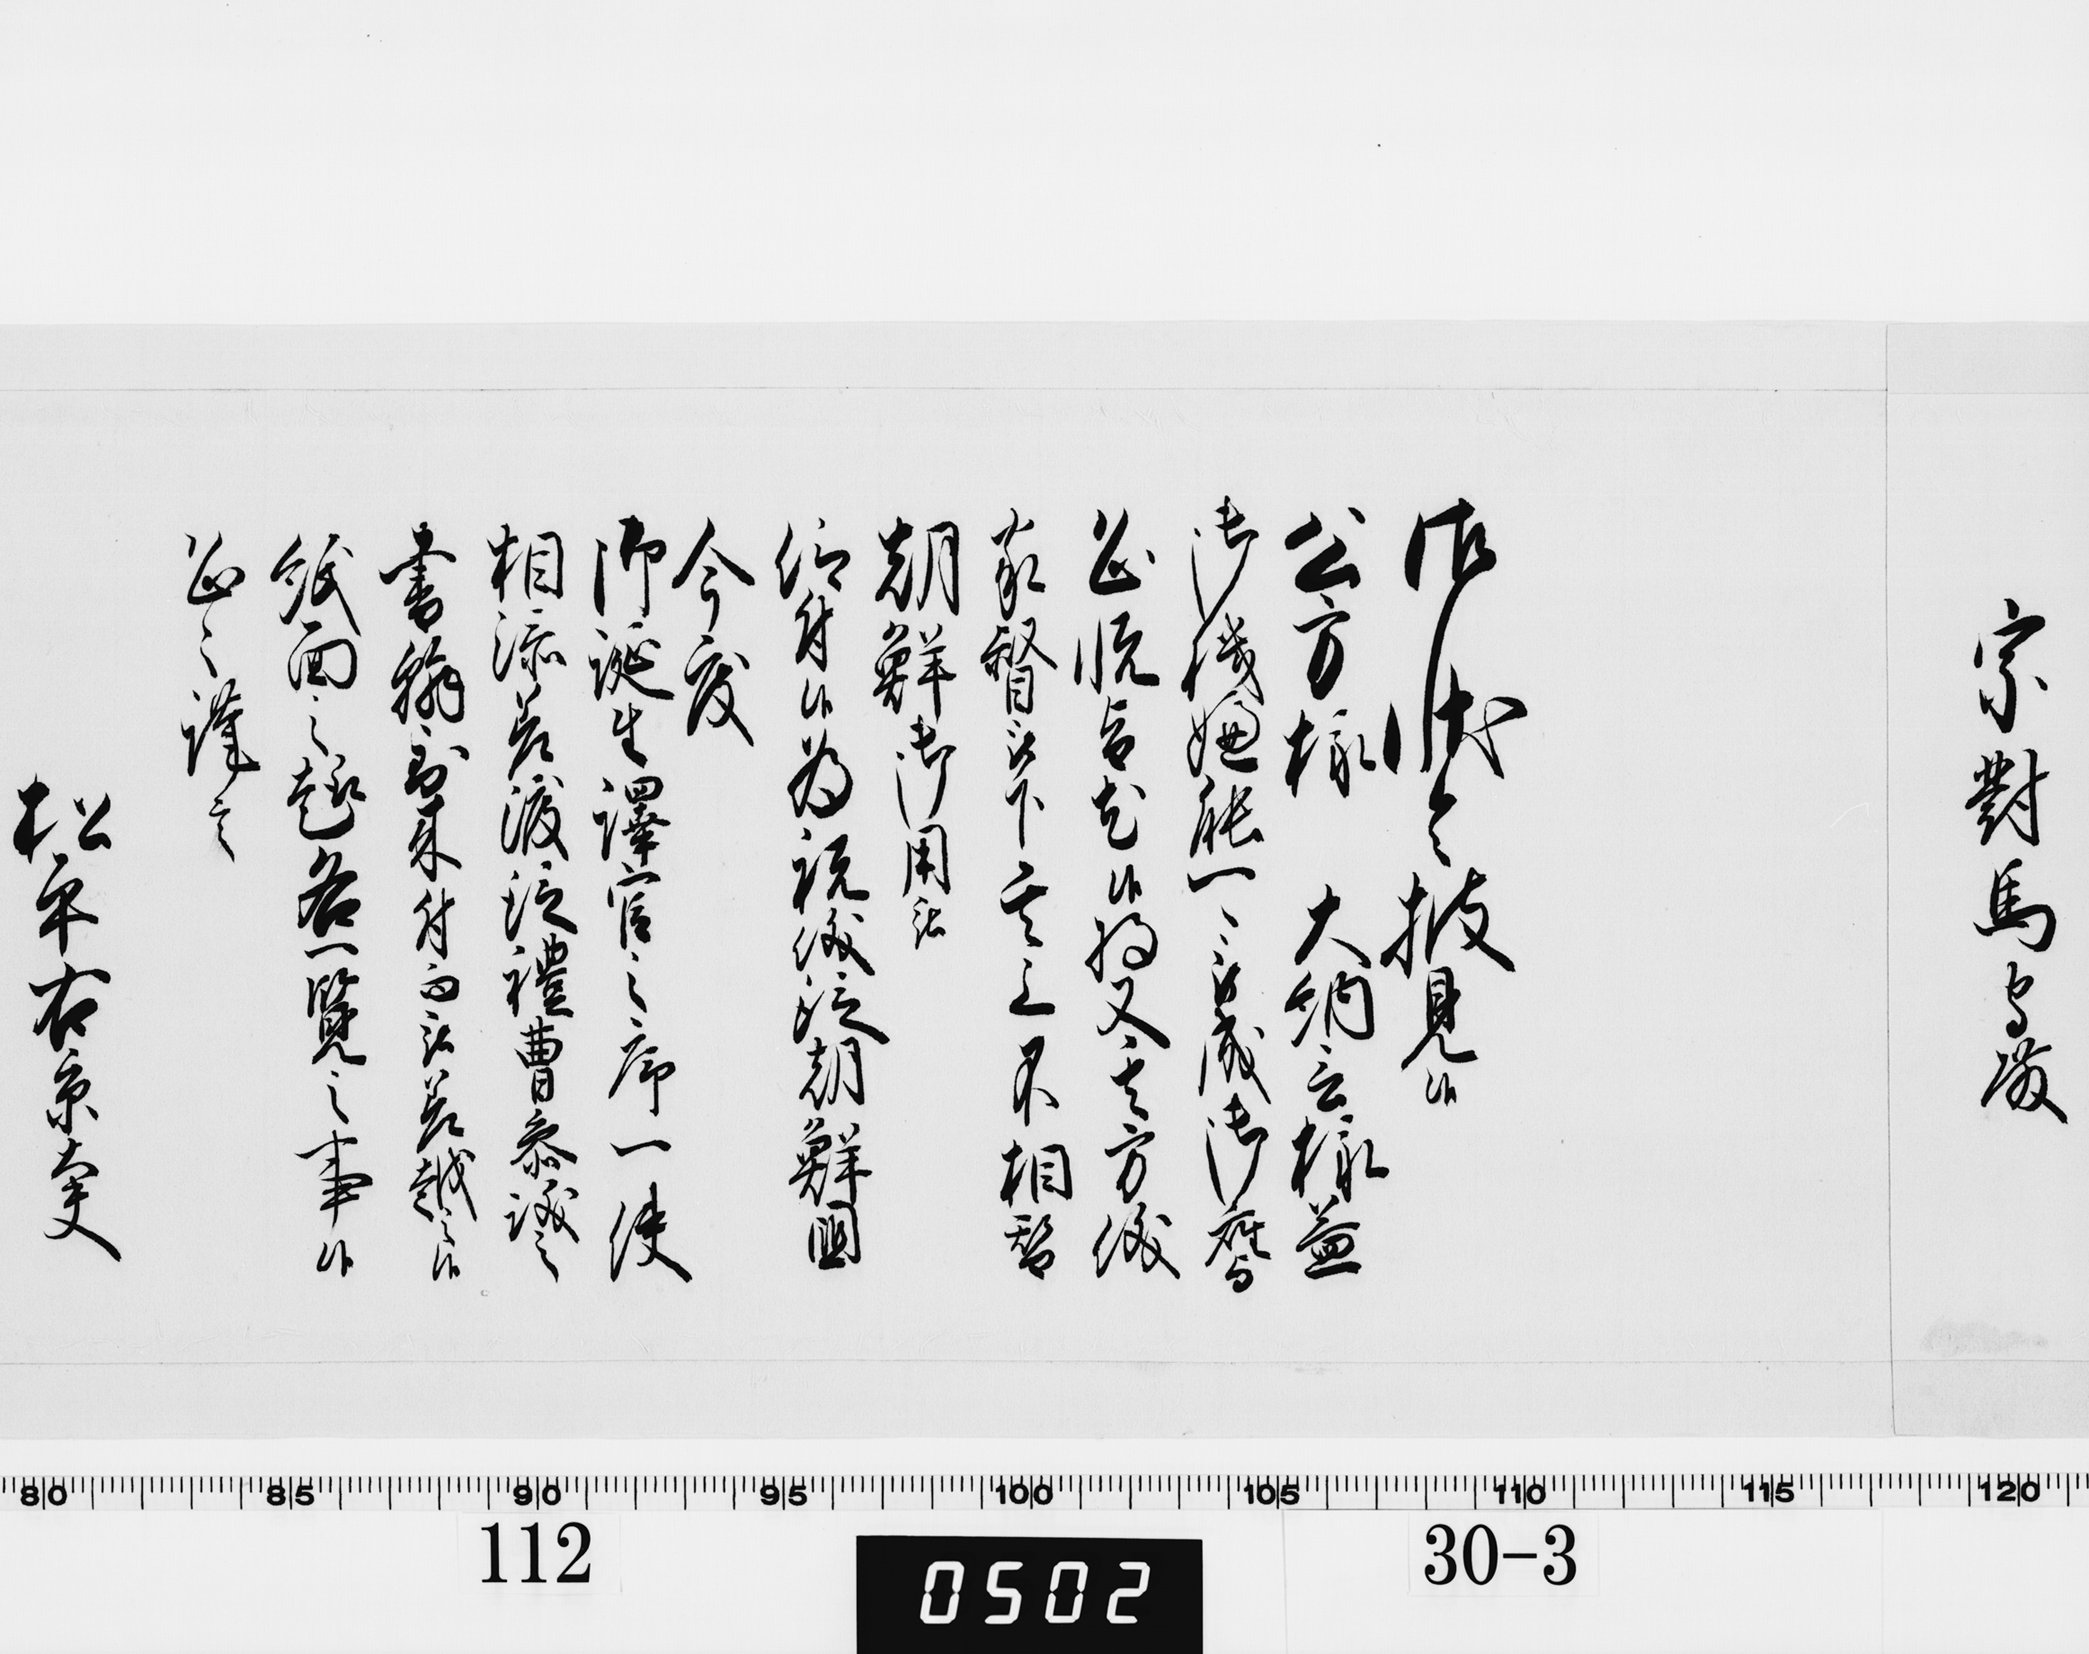 宗對馬守殿
御状令披見候
公方様 大納言様益
御機嫌能可被成御座
恐悦旨尤候将又其方儀
家督以下其上不相替
朝鮮御用被
仰付候為祝儀從朝鮮國
今度
御誕生譯官之序一使
相添差渡從禮曹参議之
書翰到来付而被差越之候
紙面之趣各一覧之事候
恐々謹言
松平右京大夫
80 85 90 95 100 105 110 115 120
112
0502
30-3